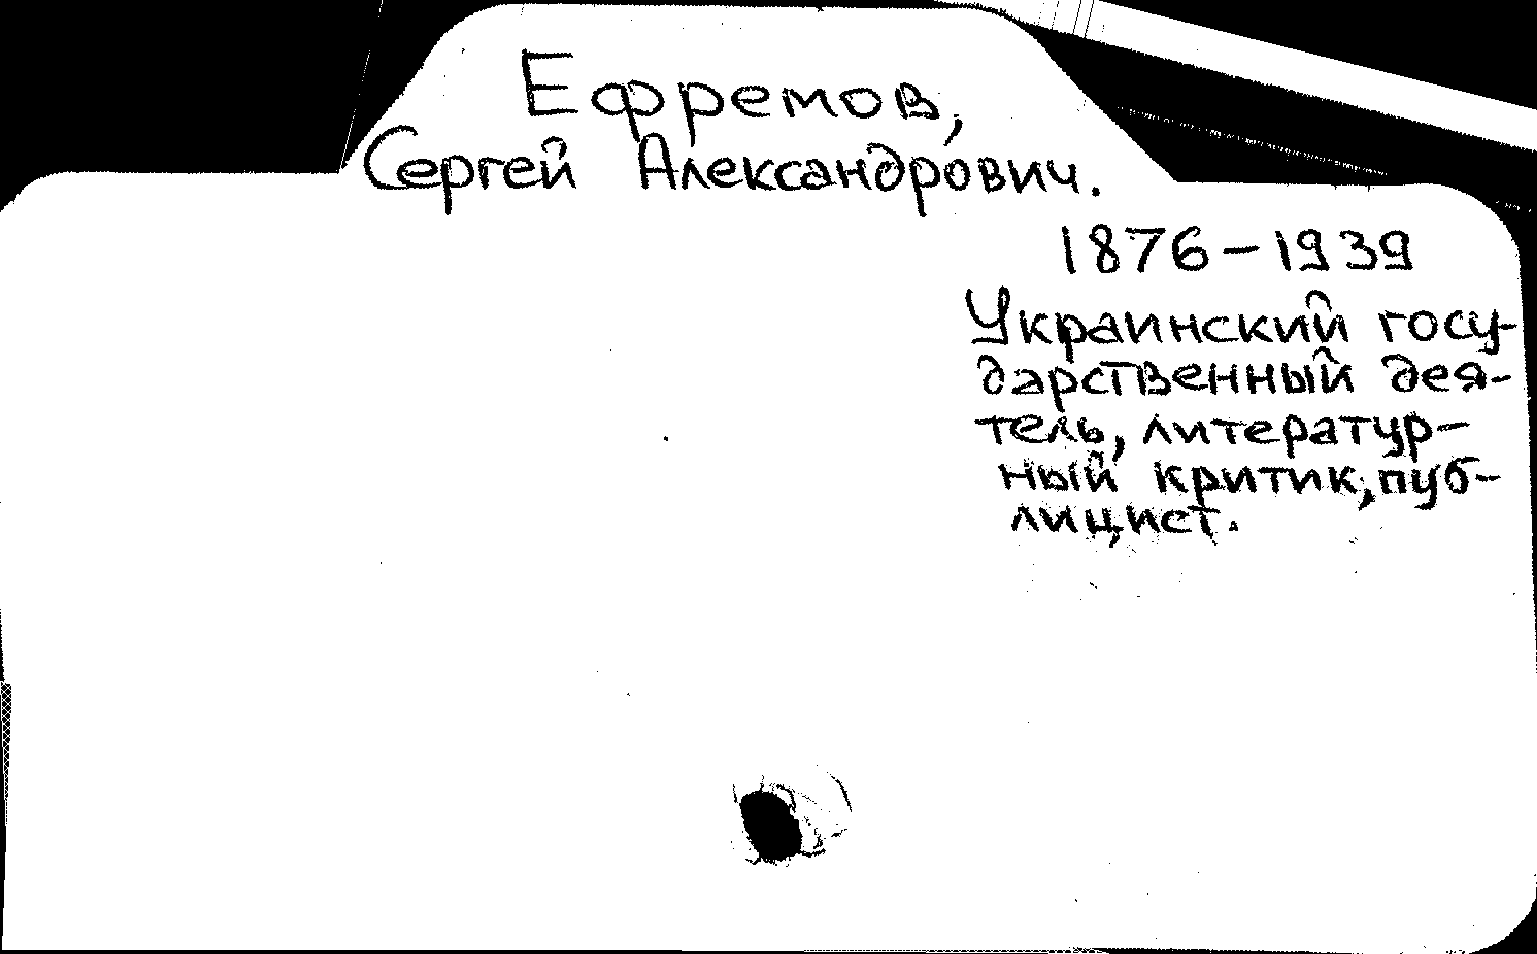 Ефремов,
Сергей Александрович.
1876-1939
Украинский госу-
дарственный дея-
тель, литератур-
ный критик, пуб-
лицист.